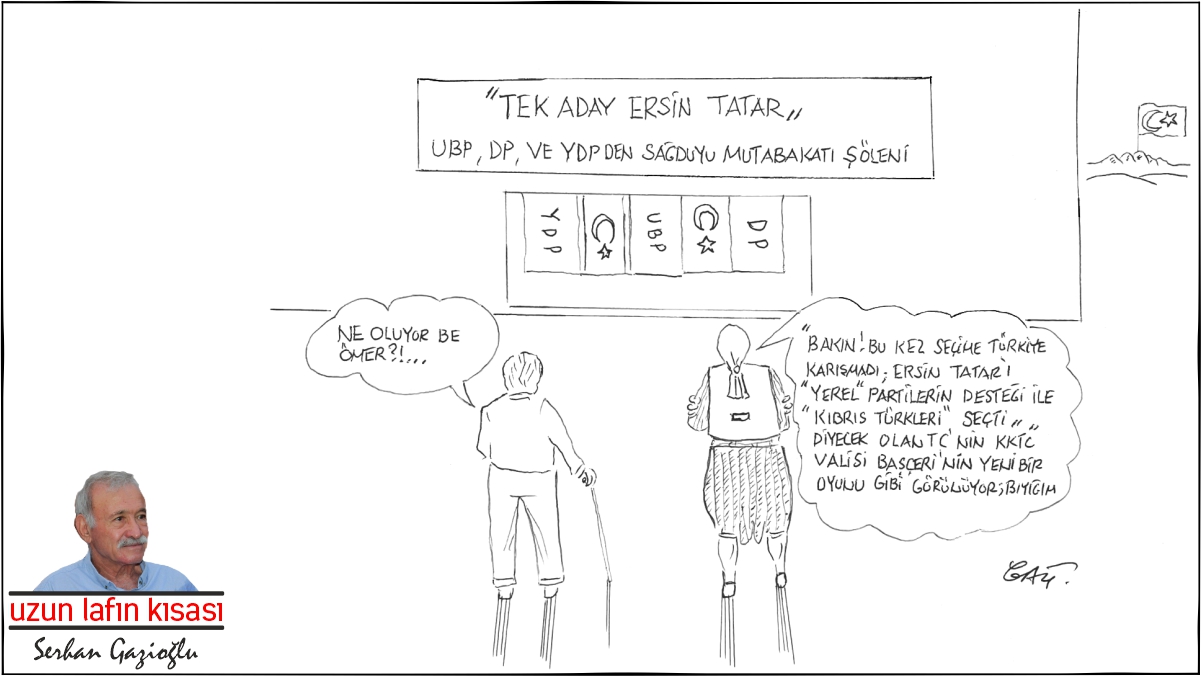 "TEK ADAY ERSİN TATAR"
UBP, DP, VE YDP DEN SAĞDUYU MUTABAKATI ŞÖLENİ
YDP
UBP
DP
NE OLUYOR BE
ÖMER?!....
"BAKIN! BU KEZ SEÇİME TÜRKİYE
KARIŞMADI; ERSİN TATAR'I
"YEREL" PARTİLERİN DESTEĞİ İLE
"KIBRIS TÜRKLERİ" SEÇTİ,, ,,
DİYECEK OLAN TC'NİN KKTC
VALİSİ BAŞÇERİ'NİN YENİ BİR
OYUNU GİBİ GÖRÜLÜYOR; BIYIĞIM
uzun lafın kısası
Serhan Gazioğlu